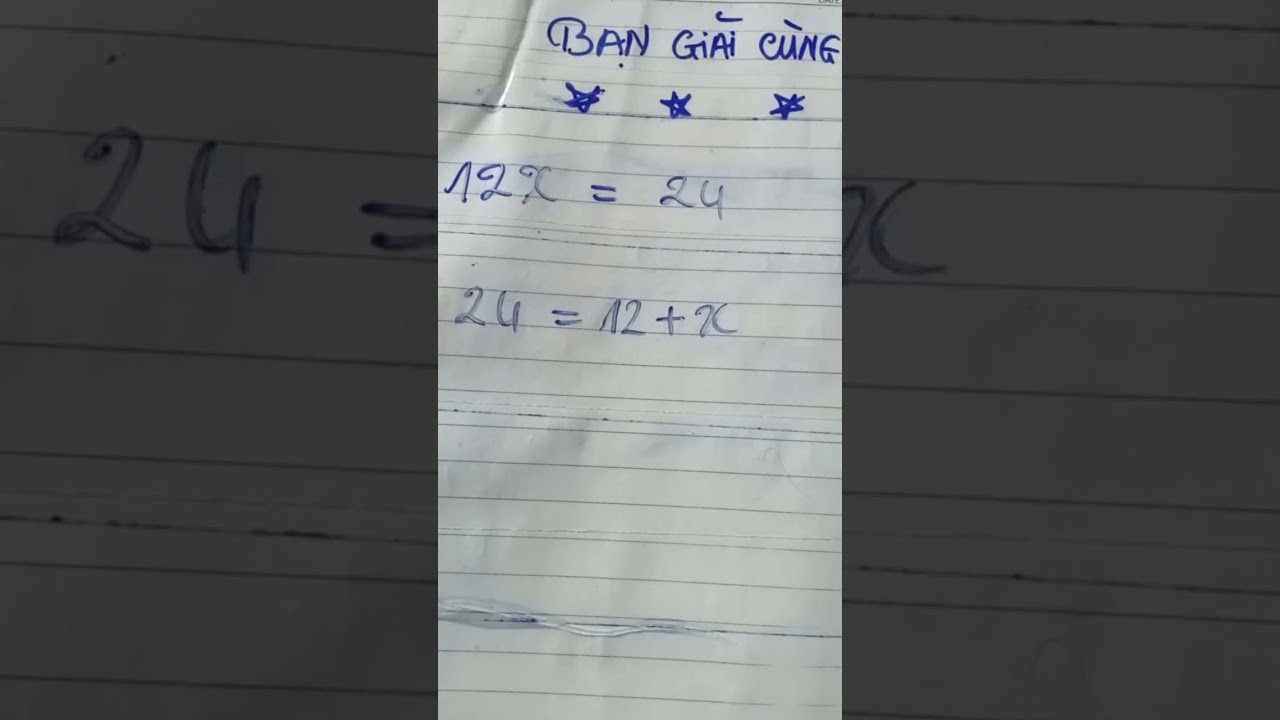 BẠN GIẢI CÙNG
12x = 24
24 = 12 + x